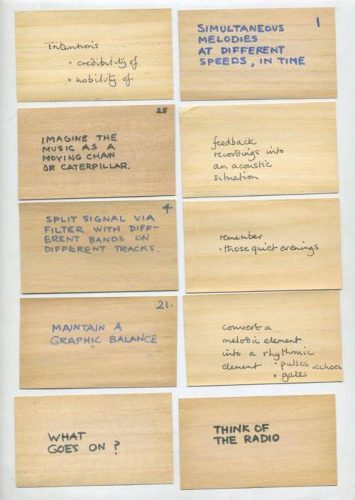 intentions
- credibility of
• nobility of
1
SIMULTANEOUS
MELODIES
AT DIFFERENT
SPEEDS, IN TIME
25
IMAGINE THE
MUSIC AS A
MOVING CHAIN
OR CATERPILLAR.
feedback
recordings into
an acoustic
situation
4
SPLIT SIGNAL VIA
FILTER WITH DIFF-
ERENT BANDS ON
DIFFERENT TRACKS.
remember
• those quiet evenings
21.
MAINTAIN A
GRAPHIC BALANCE
convert a
melodic element
into a rhythmic
element • pulses • echoes
• gates
WHAT
GOES ON?
THINK OF
THE RADIO